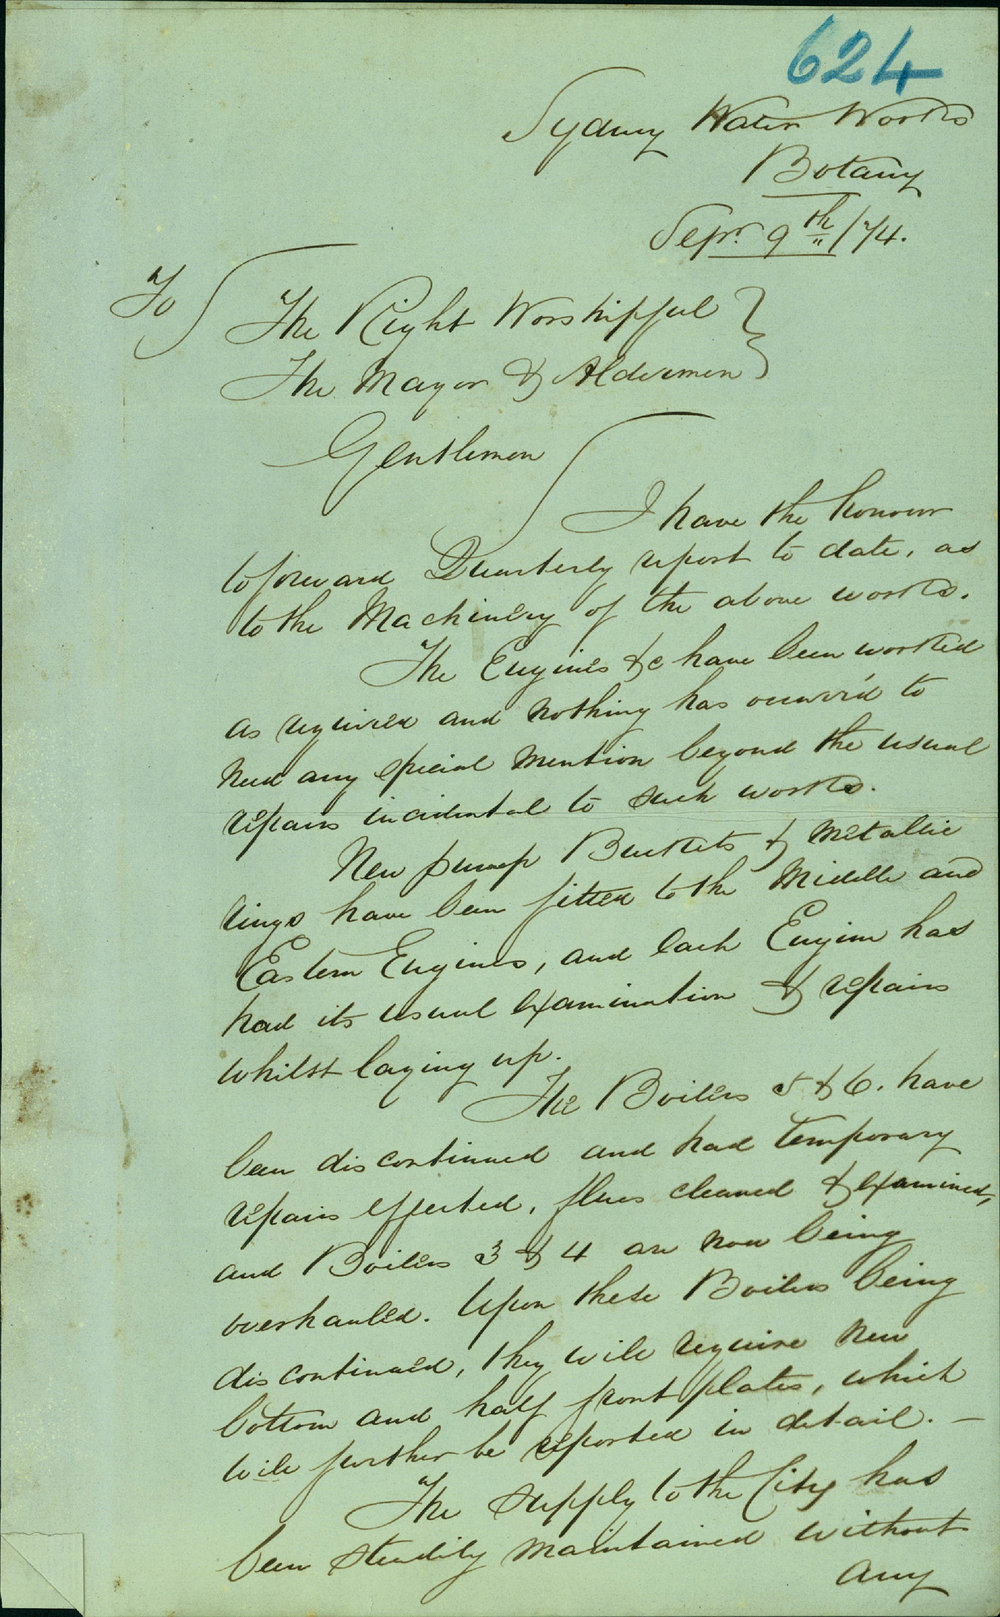 624
Sydney Water Works
Botany
Sepr. 9th /74.
To
The Right Worshipful
The Mayor & Aldermen
Gentlemen
I have the honour
to forward Quarterly report to date, as
to the Machinery of the above works.
The Engines &c have been worked
as required and nothing has occurr'd to
need any special mention beyond the usual
repairs incidental to such works.
New pump Buckets & metallic
rings have been fitted to the Middle and
Eastern Engines, and each Engine has
had its usual examination & repairs
whilst laying up.
The Boilers 5 & 6. have
been discontinued and had temporary
repairs effected, flues cleaned & examined,
and Boilers 3 & 4 are now being
overhauled. Upon these Boilers being
discontinued, they will require new
bottom and half front plates, which
will further be reported in detail. —
The supply to the City has
been steadily maintained without
any